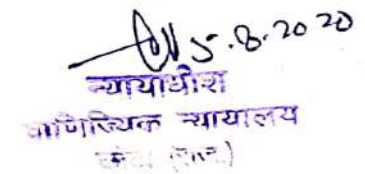 5.8.2020
न्यायाधीश
वाणिज्यिक न्यायालय
(राज.)